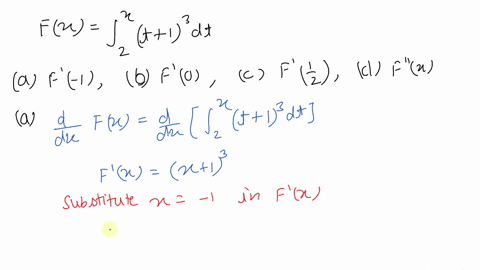 F(x) = ∫₂ˣ (t+1)³ dt
(a) F'(-1), (b) F'(0), (c) F'(1/2), (d) F''(x)
(a) d/dx F(x) = d/dx [∫₂ˣ (t+1)³ dt]
F'(x) = (x+1)³
Substitute x = -1 in F'(x)